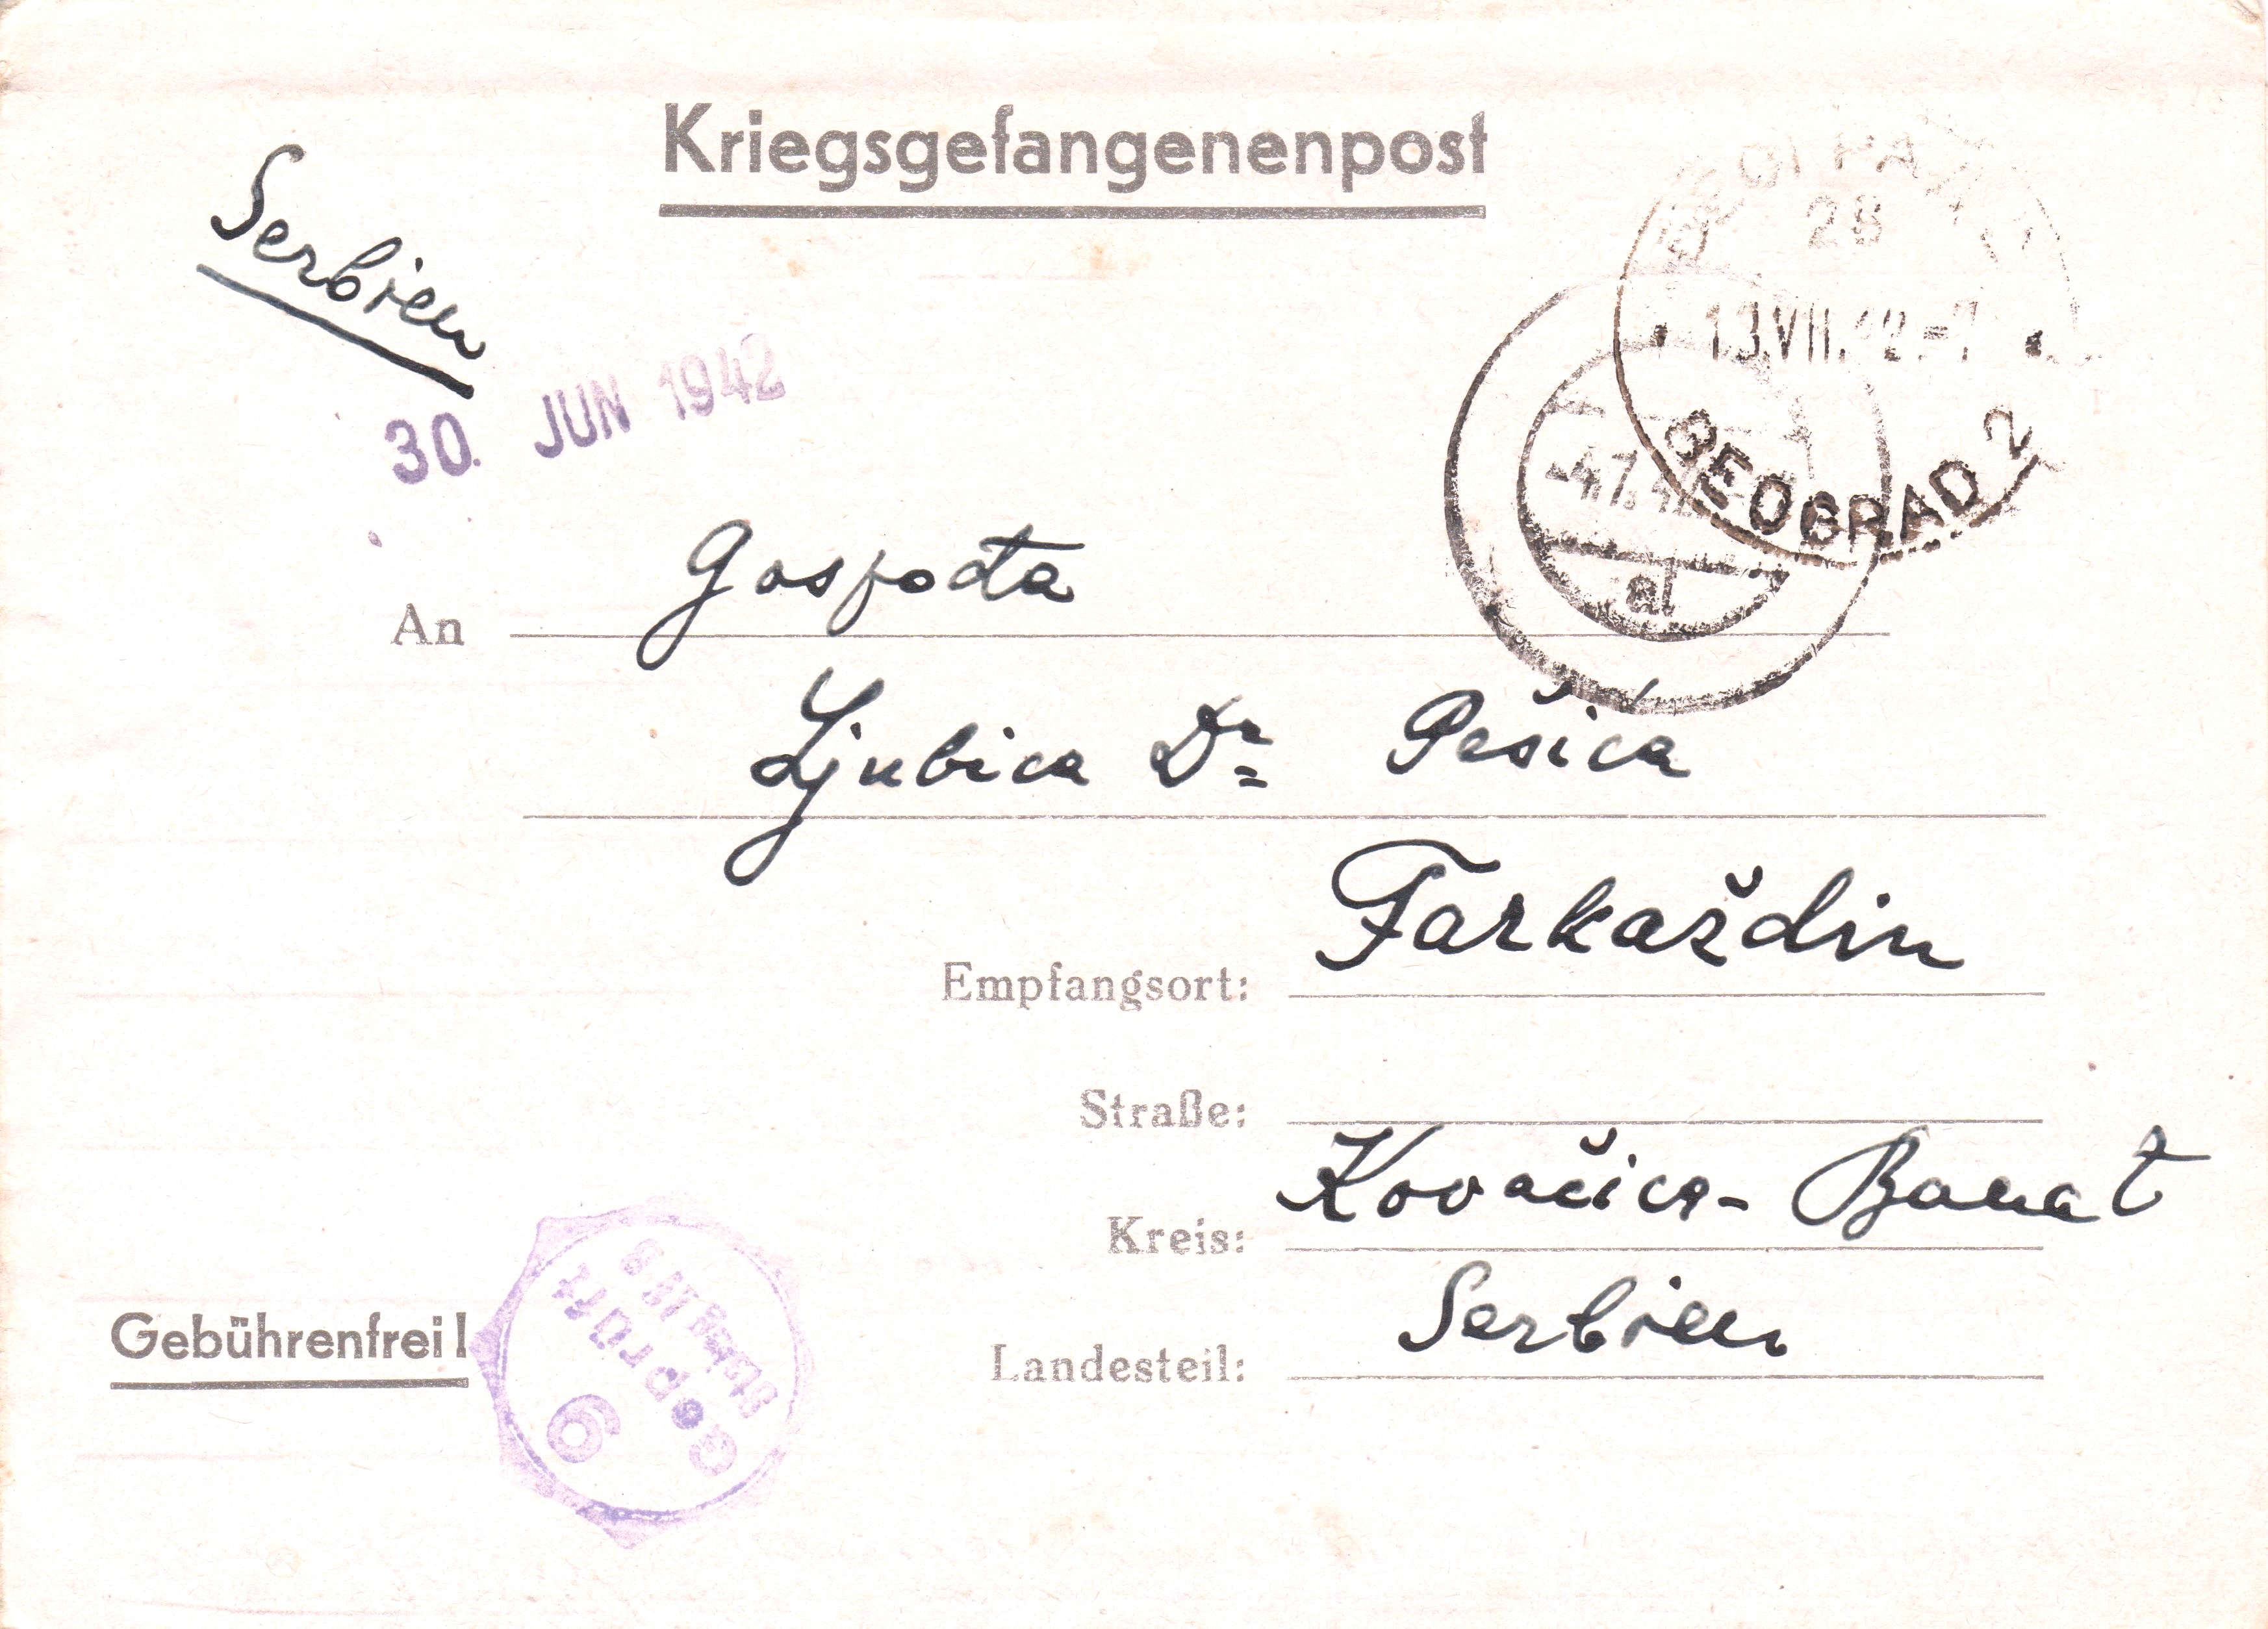 Kriegsgefangenenpost
Serbien
30. JUN 1942
28
13.VII.42-7
BEOGRAD 2
-4.7.42
al
An Gospođa
Ljubica Dr Pešića
Empfangsort: Farkaždin
Straße:
Kreis: Kovačica- Banat
Landesteil: Serbien
Gebührenfrei!
Geprüft
6